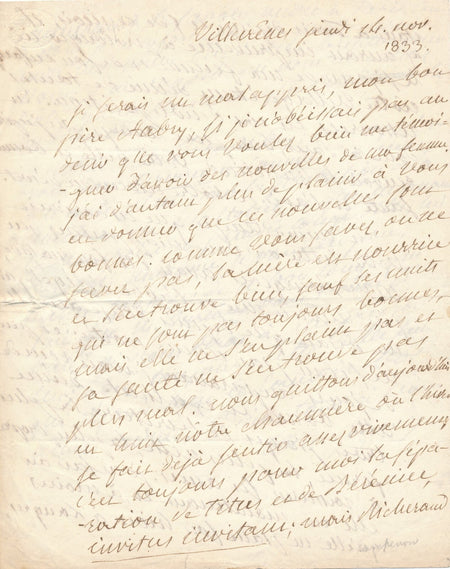 Villecrênes jeudi 14. nov.
1833.
Je serais un mal appris, mon bon
père Aubry, si je n'obéissais pas au
desir que vous voulez bien me témoi-
-gner d'avoir des nouvelles de ma femme
j'ai d'autant plus de plaisir à vous
en donner que ces nouvelles sont
bonnes. comme vous savez, ou ne
savez pas, la mère est nourrice
et s'en trouve bien, sauf les nuits
qui ne sont pas toujours bonnes,
mais elle ne s'en plaint pas et
sa santé ne s'en trouve pas
plus mal. nous quittons d'aujourd'hui
en huit notre chaumière où l'hiver
se fait déjà sentir assez vivement
c'est toujours pour moi la sépa-
-ration de Titus et de Bérénice,
invitus invitam; mais Richerand